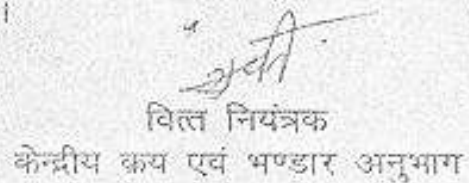 वित्त नियंत्रक
केन्द्रीय क्रय एवं भण्डार अनुभाग